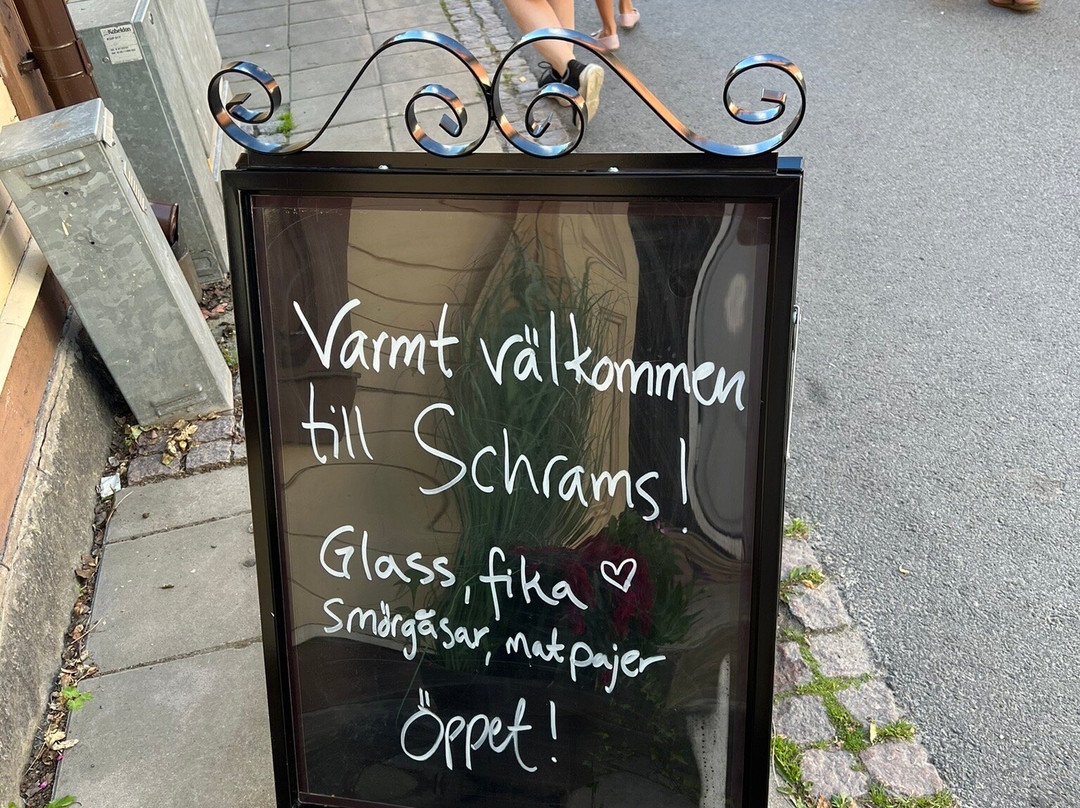 Kabeldon
Varmt välkommen
till Schrams!
Glass, fika ♡
Smörgåsar, matpajer
Öppet!